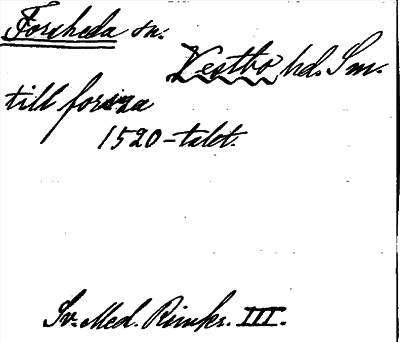 Forsheda sn.
Vestbo hd. Sm.
till forsza
1520-talet.
Sv. Med. Rimkr. III.